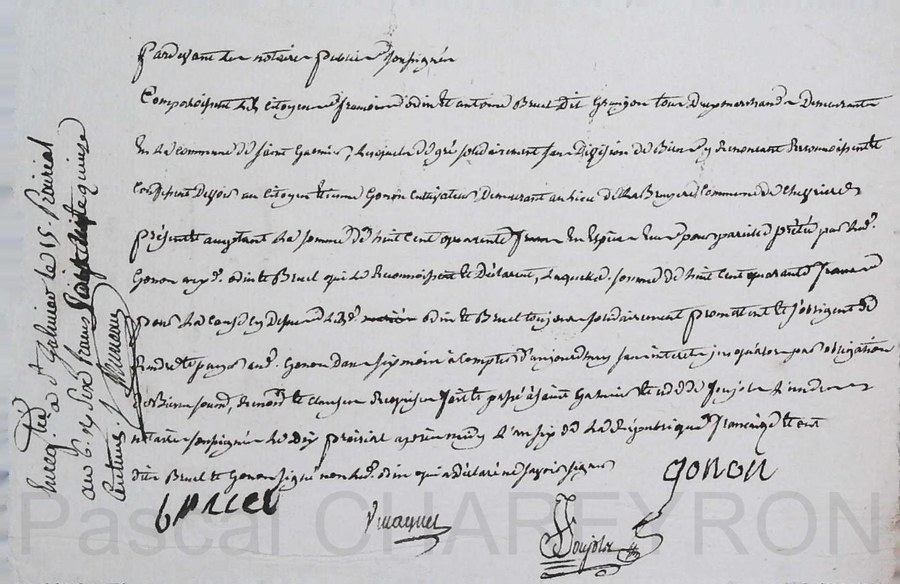 Pardevant les notaires publics soussignés
Comparoissent les citoyens françois odin et antoine Bruel dit Grangon tous deux marchands Demeurants
En la commune de Saint Galmier, Lesquels de gré solidairement sans Division de Biens y Renonçant Reconnoissent et
Confessent Devoir au citoyen Gonon Cultivateur Demeurant au lieu de la Bruyere Commune de Chevrieres
Présent et acceptant La somme de huit cent quarante francs En Espèces pour pareille prêtée par led.
Gonon auxd. odin et Bruel qui le Reconnoissent et Déclarent, Laquelle somme de huit cent quarante francs
pour La cause cy dessus Lesd. odin et Bruel toujours solidairement promettent et s'obligent de
Rendre et payer aud. Gonon Dans six mois à compter d'aujourd'huy sans interets jusqu'alors sous obligation
de Biens soumis, renon. et clauses Requises fait et passé à Saint Galmier Étude de Soujole L'un des
notaires soussignés Le dix prairial après midy L'an six de La République française et ont
dits Bruel et Gonon signé non led. odin qui a déclaré ne savoir signer
gonon
bruel
Soujole
Enreg tré a St Galmier le 15 Prairial
an 6. R. Six francs
Centimes
Pascal CHAREYRON